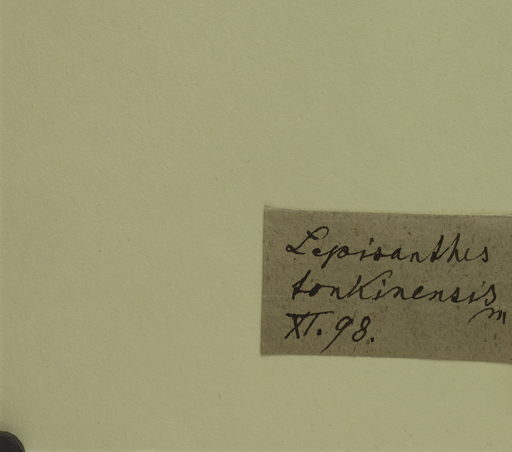 Lepisanthes
tonkinensis
m
XI. 98.